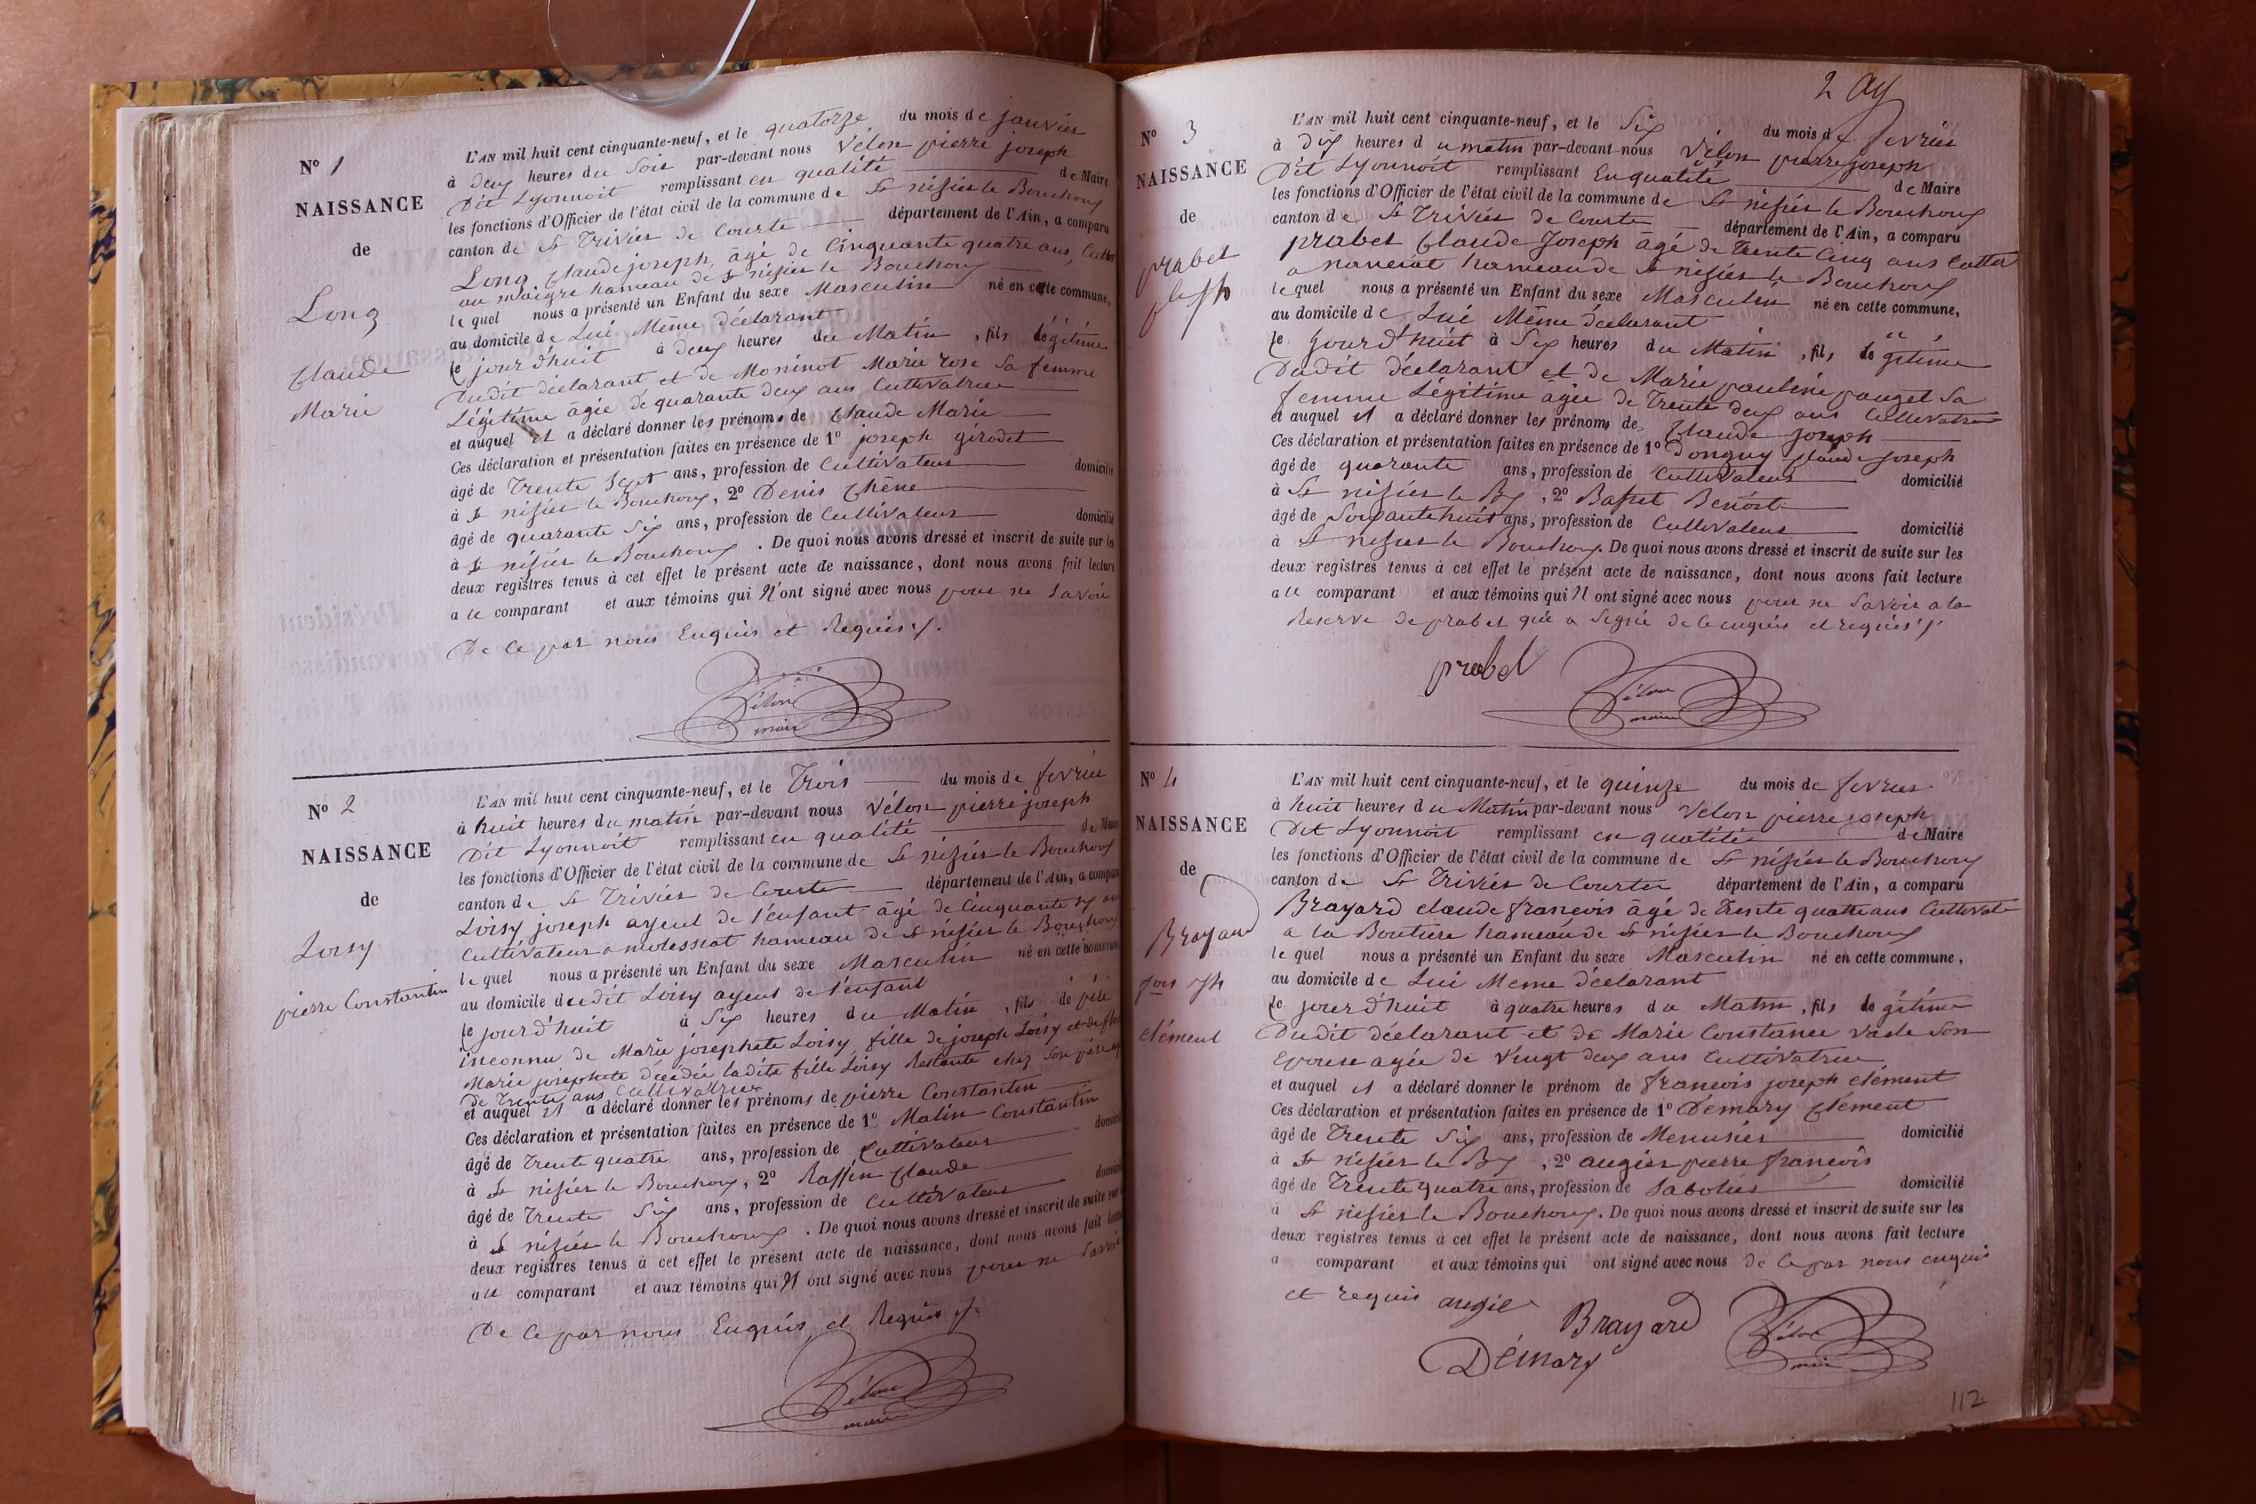 N° 1
NAISSANCE
de
Long
Claude
Marie
L'AN mil huit cent cinquante-neuf, et le quatorze du mois de janvier
à deux heures du Soir par-devant nous Vélon pierre joseph
Dit Lyonnoit remplissant en qualité de Maire
les fonctions d'Officier de l'état civil de la commune de St nisier le Bouchoux
canton de St Trivier de Courte département de l'Ain, a comparu
Long Claude joseph, âgé de Cinquante quatre ans,
au maigre hameau de St nisier le Bouchoux
lequel nous a présenté un Enfant du sexe Masculin né en cette commune,
au domicile de Lui Même déclarant
le jourd'huit à deux heures du Matin, fils légitime
Dudit déclarant et de Moninot Marie rose Sa femme
Légitime âgée de quarante deux ans Cultivatrice
et auquel il a déclaré donner les prénoms de Claude Marie
Ces déclaration et présentation faites en présence de 1° joseph girodet
âgé de Trente Sept ans, profession de Cultivateur domicilié
à St nisier le Bouchoux, 2° Denis Chêne
âgé de quarante Six ans, profession de Cultivateur domicilié
à St nisier le Bouchoux. De quoi nous avons dressé et inscrit de suite sur les
deux registres tenus à cet effet le présent acte de naissance, dont nous avons fait lecture
a ce comparant et aux témoins qui N'ont signé avec nous pour ne Savoir
De Ce par nous Enquis et Requis ./.
Vélon
maire
N° 2
NAISSANCE
de
Loisy
pierre Constantin
L'AN mil huit cent cinquante-neuf, et le Trois du mois de fevrier
à huit heures du matin par-devant nous Vélon pierre joseph
Dit Lyonnoit remplissant en qualité de Maire
les fonctions d'Officier de l'état civil de la commune de St nisier le Bouchoux
canton de St Trivier de Courte département de l'Ain, a comparu
Loisy joseph ayeul de l'enfant âgé de Cinquante
Cultivateur a molessiat hameau de St nisier le Bouchoux
lequel nous a présenté un Enfant du sexe Masculin né en cette commune
au domicile dudit Loisy ayeul de l'enfant
le jourd'huit à Six heures du Matin, fils de père
inconnu de Marie josephete Loisy fille de joseph Loisy et de
Marie josephete décédée ladite fille Loisy Restante chez Son père
De Trente ans Cultivatrice
et auquel il a déclaré donner les prénoms de pierre Constantin
Ces déclaration et présentation faites en présence de 1° Matin Constantin
âgé de Trente quatre ans, profession de Cultivateur
à St nisier le Bouchoux, 2° Raffin Claude
âgé de Trente Six ans, profession de Cultivateur
à St nisier le Bouchoux. De quoi nous avons dressé et inscrit de suite sur
deux registres tenus à cet effet le présent acte de naissance, dont nous avons fait
a ce comparant et aux témoins qui N'ont signé avec nous pour ne Savoir
De Ce par nous Enquis et Requis ./.
Vélon
maire
2
N° 3
NAISSANCE
de
prabel
L'AN mil huit cent cinquante-neuf, et le Six du mois de fevrier
à Dix heures du matin par-devant nous Vélon pierre joseph
Dit Lyonnoit remplissant En qualité de Maire
les fonctions d'Officier de l'état civil de la commune de St nisier le Bouchoux
canton de St Trivier de Courte département de l'Ain, a comparu
prabel Claude Joseph âgé de Trente Cinq ans
a hameau de St nisier le Bouchoux
lequel nous a présenté un Enfant du sexe Masculin né en cette commune,
au domicile de Lui Même déclarant
le jourd'huit à Six heures du Matin, fils légitime
Dudit déclarant et de Marie pauline pauget Sa
femme Légitime agée de Trente deux ans Cultivatrice
et auquel il a déclaré donner les prénoms de Claude joseph
Ces déclaration et présentation faites en présence de 1° Donguy Claude Joseph
âgé de quarante ans, profession de Cultivateur domicilié
à St nisier le Bx, 2° Bafset Benoit
âgé de Soixante huit ans, profession de Cultivateur domicilié
à St nisier le Bouchoux. De quoi nous avons dressé et inscrit de suite sur les
deux registres tenus à cet effet le présent acte de naissance, dont nous avons fait lecture
a ce comparant et aux témoins qui N'ont signé avec nous pour ne Savoir a la
Reserve de prabel qui a Signé de ce enquis et requis ./.
prabel
Vélon
maire
N° 4
NAISSANCE
de
Brayard
fois jph
Clément
L'AN mil huit cent cinquante-neuf, et le quinze du mois de fevrier
à huit heures du Matin par-devant nous Vélon pierre joseph
Dit Lyonnoit remplissant en qualité de Maire
les fonctions d'Officier de l'état civil de la commune de St nisier le Bouchoux
canton de St Trivier de Courte département de l'Ain, a comparu
Brayard claude françois âgé de Trente quatre ans
a la Boutiere hameau de St nisier le Bouchoux
lequel nous a présenté un Enfant du sexe Masculin né en cette commune,
au domicile de Lui Meme déclarant
le jourd'huit à quatre heures du Matin, fils légitime
Dudit déclarant et de Marie Constance Son
Epouse agée de Vingt deux ans Cultivatrice
et auquel il a déclaré donner le prénom de françois joseph clément
Ces déclaration et présentation faites en présence de 1° Démary Clément
âgé de Trente Six ans, profession de Menusier domicilié
à St nisier le Bx, 2° augier pierre françois
âgé de Trente quatre ans, profession de Sabotier domicilié
à St nisier le Bouchoux. De quoi nous avons dressé et inscrit de suite sur les
deux registres tenus à cet effet le présent acte de naissance, dont nous avons fait lecture
a comparant et aux témoins qui ont signé avec nous de Ce par nous enquis
et requis augier Brayard
Démary Vélon
maire
112